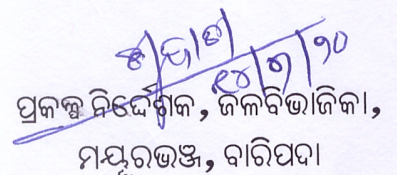 ପ୍ରକଳ୍ପ ନିର୍ଦ୍ଦେଶକ, ଜଳବିଭାଜିକା,
ମୟୂରଭଞ୍ଜ, ବାରିପଦା